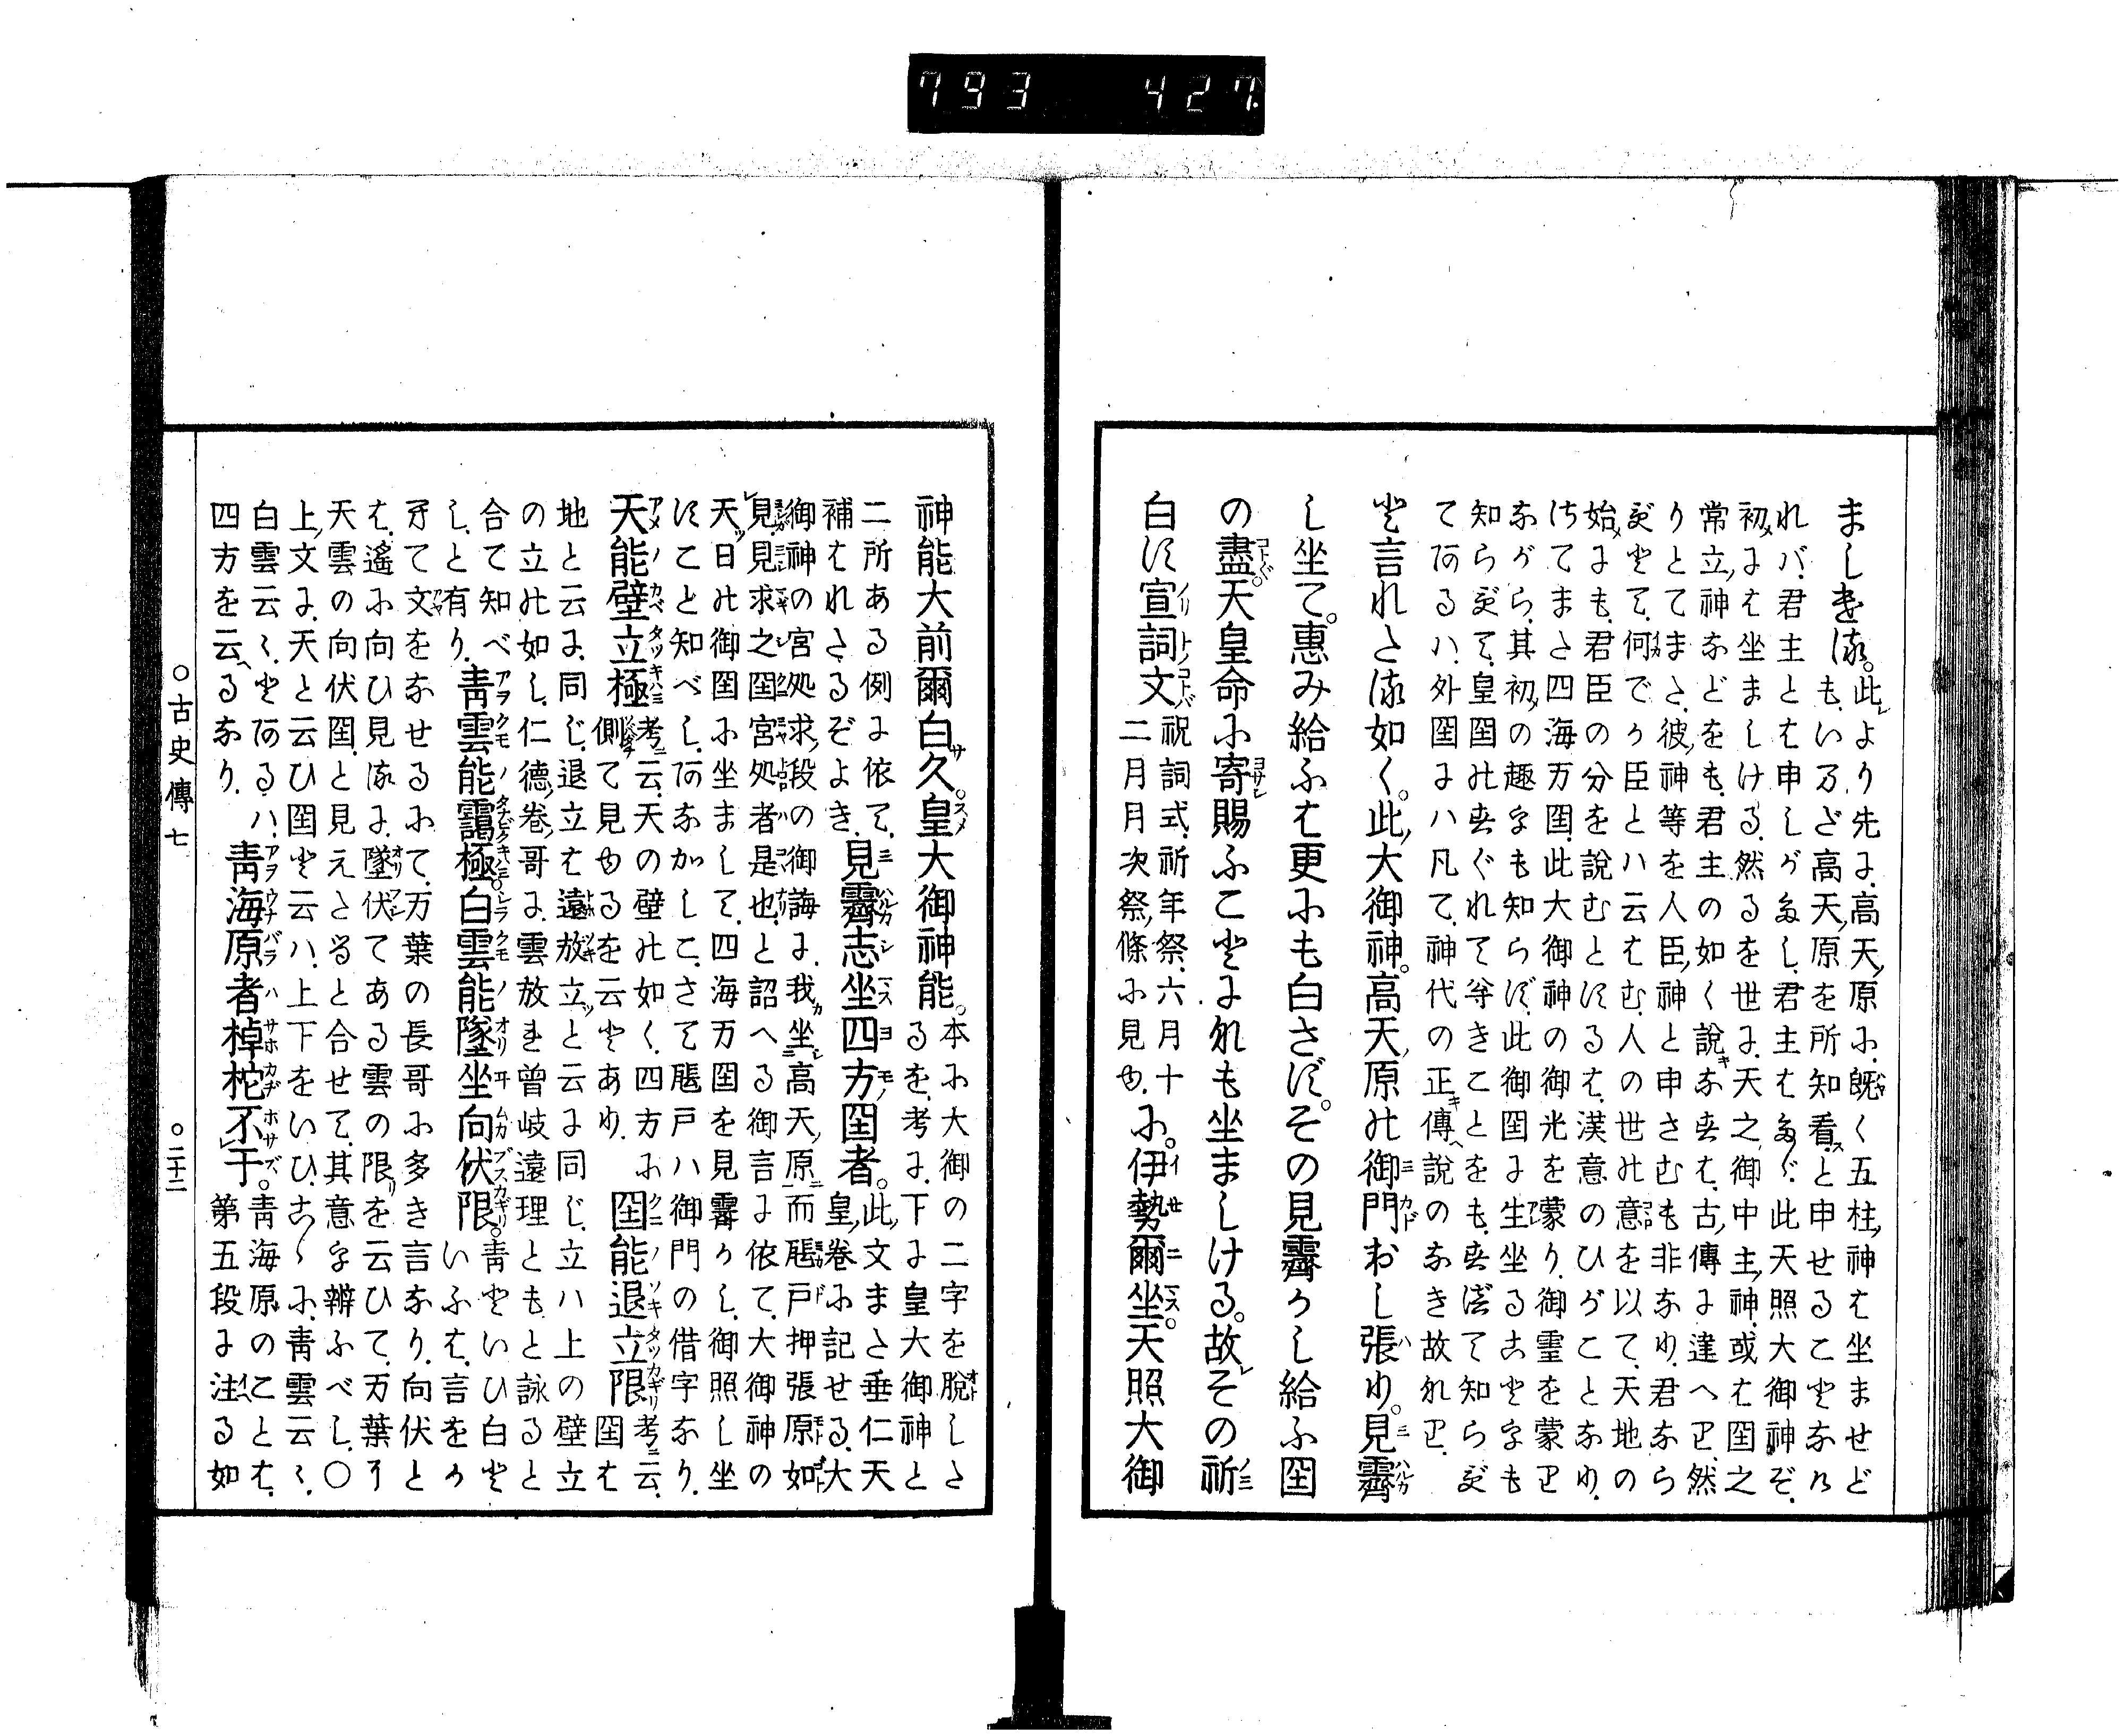 793 427
ましき。此より先に。高天原に。既く五柱神は坐ませど
も。いまだ高天原を所知看。と申せることなけ
れバ。君主とは申しがたし。君主はたゞ此天照大御神ぞ。
初には坐ましける。然るを世に。天之御中主神。或は国之
常立神などをも。君主の如く説なせるは。古傳に違へり。然
りとてまた。彼神等を人臣神と申さむも非なり。君なら
ずとて。何でか臣とハ云はむ。人の世の意を以て。天地の
始にも。君臣の分を説むとするは。漢意のひがことなり。
さてまた四海万国。此大御神の御光を蒙り。御霊を蒙り
ながら。其初の趣をも知らず。此御国に生坐ることをも
知らずて。皇国のすぐれて尊きことをも。すべて知らず
てあるハ。外国にハ凡て。神代の正傳説のなき故なり。
と言れたる如く。此大御神。高天原の御門おし張り。見霽
し坐て。恵み給ふは更にも白さず。その見霽かし給ふ国
の盡。天皇命に寄賜ふことにれも坐ましける。故その祈
白す宣詞文 祝詞式。祈年祭。六月十
二月月次祭條に見ゆ。 に。伊勢爾坐。天照大御
神能大前爾白久。皇大御神能。 本に大御の二字を脱した
るを。考に。下に皇大御神と
二所ある例に依て。
補はれたるぞよき。 見霽志坐四方国者。 此文また垂仁天
皇卷に記せる。大
御神の宮処求段の御誨に。我坐高天原而甕戸押張原如
見見求之国宮処者是也。と詔へる御言に依て。大御神の
天日の御国に坐まして。四海万国を見霽かし。御照し坐
すこと知べし。あなかしこ。さて甕戸ハ御門の借字なり。
天能壁立極 考ニ云。天の壁の如く。四方に
側て見ゆるを云とあり。 国能退立限 考ニ云。
国は
地と云に同じ。退立は遠放立と云に同じ。立ハ上の壁立
の立の如し。仁德卷哥に。雲放き曾岐遠理とも。と詠ると
合て知べ
し。と有り。 青雲能靄極。白雲能墜坐向伏限。 青といひ白と
いふは。言をか
へて文をなせるにて。万葉の長哥に多き言なり。向伏と
は。遙に向ひ見るに。墜伏てある雲の限を云ひて。万葉に
天雲の向伏国。と見えたると合せて。其意を辨ふべし。○
上文に。天と云ひ国と云ハ。上下をいひ。こゝに。青雲云々。
白雲云々。とあるハ。
四方を云へるなり。 青海原者棹柁不干。 青海原のことは。
第五段に注る如
○古史傳七 ○二十二